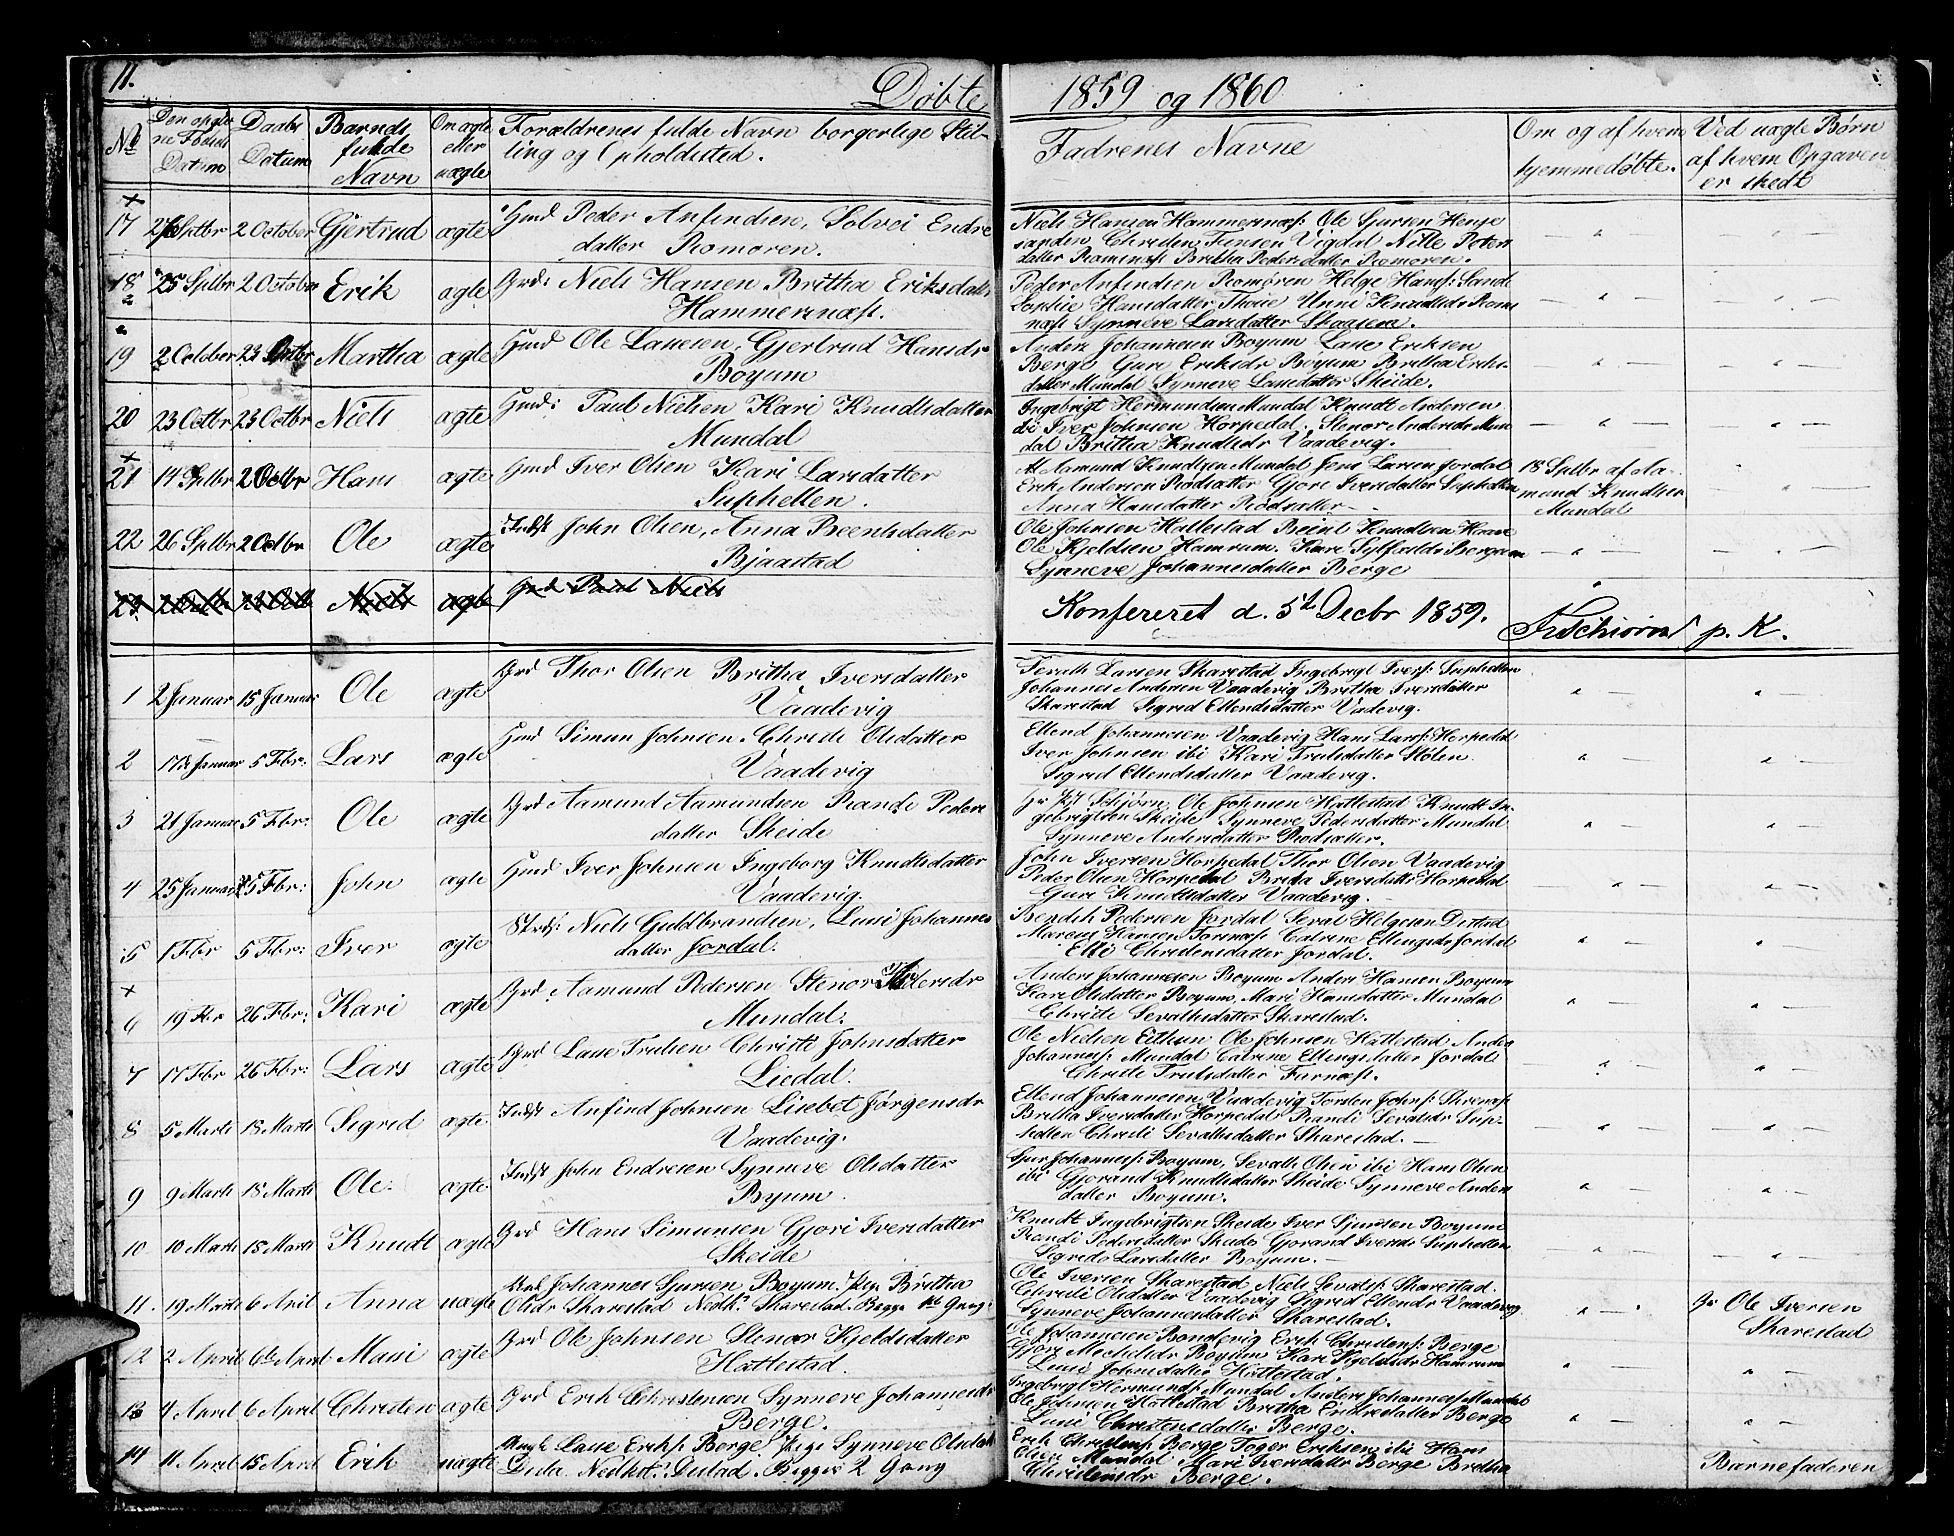 11.
Døbte
1859 og 1860
No
Den opgiv
ne Fødsels
Datum
Daabs
Datum
Barnets
fulde
Navn
Om ægte
eller
uægte
Forældrenes fulde Navn borgerlige Stil-
ling og Opholdssted.
Fadrenes Navne
Om og af hvem
hjemmedøbte.
Ved uægte Børn
af hvem Opgaven
er skedt
17 Sptbr 2 October Gjertrud ægte Hmd Peder Anfindsen, Solvei Endre
datter Romøren.
Niels Hansen Hammersnæs: Ole Sjursen Henje
sanden Christen Vigdal Nille Peders
datter Romsnæs Britha Pedersdatter Romøren.
18 25 Sptbr 2 October Erik ægte Grd: Niels Hansen Britha Eriksdatter
Hammersnæs.
Peder Anfindsen Romøren Helge Hans: Sand
Sophie Hansdatter Unni Knudtsdr Roms
næs Synneve Larsdatter
19 2 October 23 Octbr Martha ægte Hmd Ole Lassesen, Gjertrud Hansdr
Bøyum
Anders Johannesen Bøyum Lasse Eriksen
Berge Guri Eriksdr Bøyum Britha Eriks-
datter Mundal Synneve Lassedatter Skeide.
20 23 Octbr 23 Octbr Niels ægte Hmd: Paul Nielsen Kari Knudtsdatter
Mundal
Ingebrigt Hermundsen Mundal Knudt Andersen
Iver Johnsen Horpedal. Stenor Andersdr Mun
dal Britha Knudtsdr Vaadevig.
21 14 Sptbr 2 Octbr Hans ægte Hmd Iver Olsen Kari Larsdatter
Suphellen.
Aamund Knudtsen Mundal Jens Larsen Jordal
Erik Andersen Rødsætter Gjøri Iversdatter Suphellen
Anna Hansdatter Rødsætter
18 Sptbr af Aa-
mund Knudtsen
Mundal
22 26 Sptbr 2 Octbr Ole ægte Indst John Olsen, Anna Beentsdatter
Bjaastad
Ole Johnsen Hattestad Beint Knudtsen
Ole Kjeldsen Hamrum. Kari
Synneve Johannesdatter Berge
23 Niels ægte Grd Paul Niels
Konfereret d. 5te Decbr 1859.
p. K.
1 2 Januar 15 Januar Ole ægte Grd Thor Olsen Britha Iversdatter
Vaadevig
Sevath Larsen Skarestad Ingebrigt Ivers: Suphellen
Johannes Andersen Vaadevig Britha Iversdatter
Skarestad Sigrid Ellendsdatter Vadevig.
2 17de Januar 5 Fbr: Lars ægte Hmd Simun Johnsen. Christi Olsdatter
Vaadevig
Ellend Johannesen Vaadevig Hans Lars: Horpedal
Iver Johnsen ibi Kari Trulsdatter Stølen.
Sigrid Ellendsdatter Vaadevig.
3 21 Januar 5 Fbr: Ole ægte Grd Aamund Aamundsen Randi Peders
datter Skeide
Hr Pst Schjørn, Ole Johnsen Hattestad Knudt In-
gebrigtsen Skeide Synneve Pedersdatter Mundal
Synneve Andersdatter Rødsætter.
4 25 Januar 5 Fbr: John ægte Hmd Iver Johnsen Ingeborg Knudtsdatter
Vaadevig.
John Iversen Horpedal Thor Olsen Vaadevig
Peder Olsen Horpedal Brita Iversdatter Horpedal
Guri Knudtsdatter Vaadevig.
5 1 Fbr 5 Fbr: Iver ægte Niels Guldbrandsen, Lussi Johannes
datter Jordal.
Bendik Pedersen Jordal Sevat Helgesen Distad
Marcus Hansen Catrine Ellingsdr Jordal
Elli Christensdatter Jordal.
6 19 Fbr 26 Fbr: Kari ægte Grd: Aamund Pedersen Stenor Thordersdr
Mundal:
Anders Johannesen Bøyum Anders Hansen Bøyum
Kari Olsdatter Bøyum, Mari Hansdatter Mundal
Christi Sevathsdatter Skarestad.
7 17 Fbr 26 Fbr: Lars ægte Grd Lasse Trulsen Christi Johnsdatter
Liedal.
Ole Nielsen Eithun Ole Johnsen Hattestad Anders
Johannes: Mundal Catrine Ellingsdatter Jordal
Christi Trulsdatter Furnæs.
8 5 Marts 18 Marts Sigrid ægte Indst Anfind Johnsen Lisebet Jørgensdr
Vaadevig.
Ellend Johannesen Vaadevig Torsten Johns:
Britha Iversdatter Horpedal Randi Sevatsdr Sup-
hellen Christi Sevathsdatter Skarestad.
9 9 Marts 18 Marts Ole. ægte Indst John Endresen Synneve Olsdatter
Byum.
Sjur Johannes: Bøyum, Sevath Olsen ibi Hans Olsen
ibi Gjorand Knudtsdatter Skeide Synneve Anders
datter Bøyum.
10 10 Marts 18 Marts Knudt ægte Grd Hans Simunsen Gjøri Iversdatter
Skeide
Knudt Ingebrigtsen Skeide Iver Sjursen Bøyum
Randi Pedersdatter Skeide Gjorand Iversdr Suphellen
Sigrid Larsdatter Bøyum.
11. 19 Marts 6 April Anna uægte Johannes Sjursen Bøyum. Pige Britha
Olsdr Skarestad Nedk: Skarestad. Begge 1ste Gang.
Ole Iversen Skarestad Niels Sevats: Skarestad.
Christi Olsdatter Vaadevig Sigrid Ellendsdr Vaadevig
Synneve Johannesdatter Skarestad.
Gr Ole Iversen
Skarestad
12 2 April 6te April Massi ægte Grd Ole Johnsen Stenor Kjeldsdatter
Hattestad.
Ole Johannesen Bondevig Erik Christens: Berge
Gjøri Bøyum Kari Kjeldsdr Hamrum
Lussi Johnsdatter Hattestad.
13 4 April 6 April Christen ægte Grd Erik Christensen Synneve Johannesdr
Berge.
Ingebrigt Hermunds: Mundal Anders Johannes: Mundal
Ole Johnsen Hattestad Britha Endresdatter Berge
Lussi Christensdatter Berge.
14 11 April 15 April Erik uægte Ungk Lasse Eriks: Berge, Pige Synneve Olsdatter
Nedkt: Distad. Begges 2 Gang
Erik Christens: Berge Eriksen ibi Hans
Olsen Mundal Mari Iversdatter Berge Britha
Christensdr Berge.
Barnefaderen